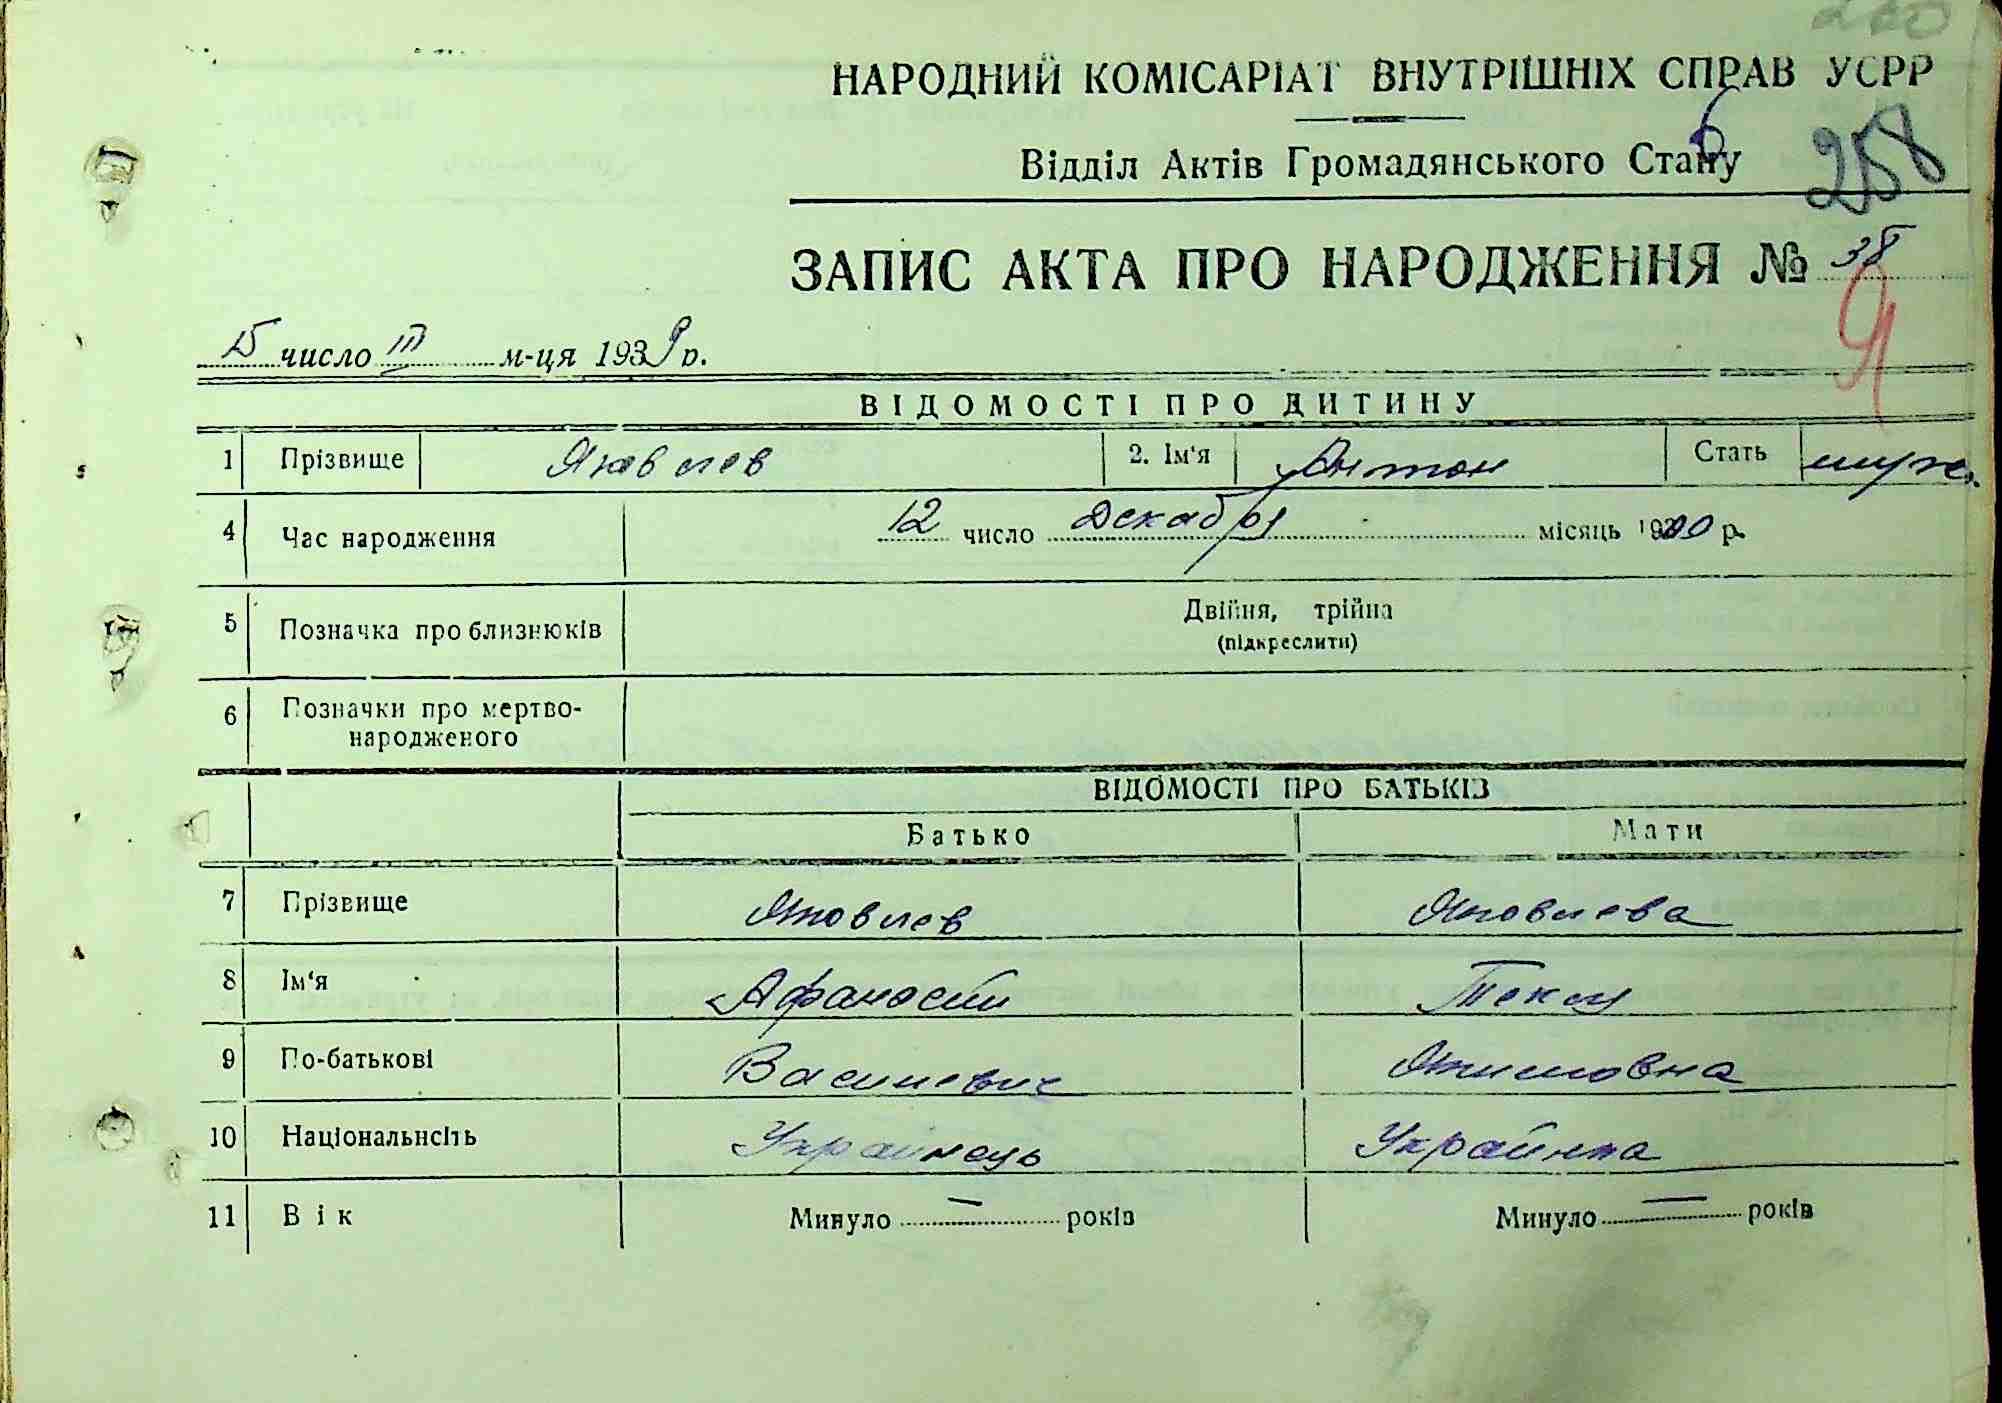 НАРОДНИЙ КОМІСАРІАТ ВНУТРІШНІХ СПРАВ УСРР
Відділ Актів Громадянського Стану
258
ЗАПИС АКТА ПРО НАРОДЖЕННЯ № 38
Я
15 число III м-ця 1939 р.
ВІДОМОСТІ ПРО ДИТИНУ
1 Прізвище Яковлев 2. Ім'я Антон Стать муж.
4 Час народження 12 число Декабря місяць р.
5 Позначка про близнюків Двійня, трійна
(підкреслити)
6 Позначки про мертво-
народженого
ВІДОМОСТІ ПРО БАТЬКІВ
Батько Мати
7 Прізвище Яковлев Яковлева
8 Ім'я Афанасий Текля
9 По-батькові Василевич
10 Національність Українець Украинка
11 Вік Минуло — років Минуло — років